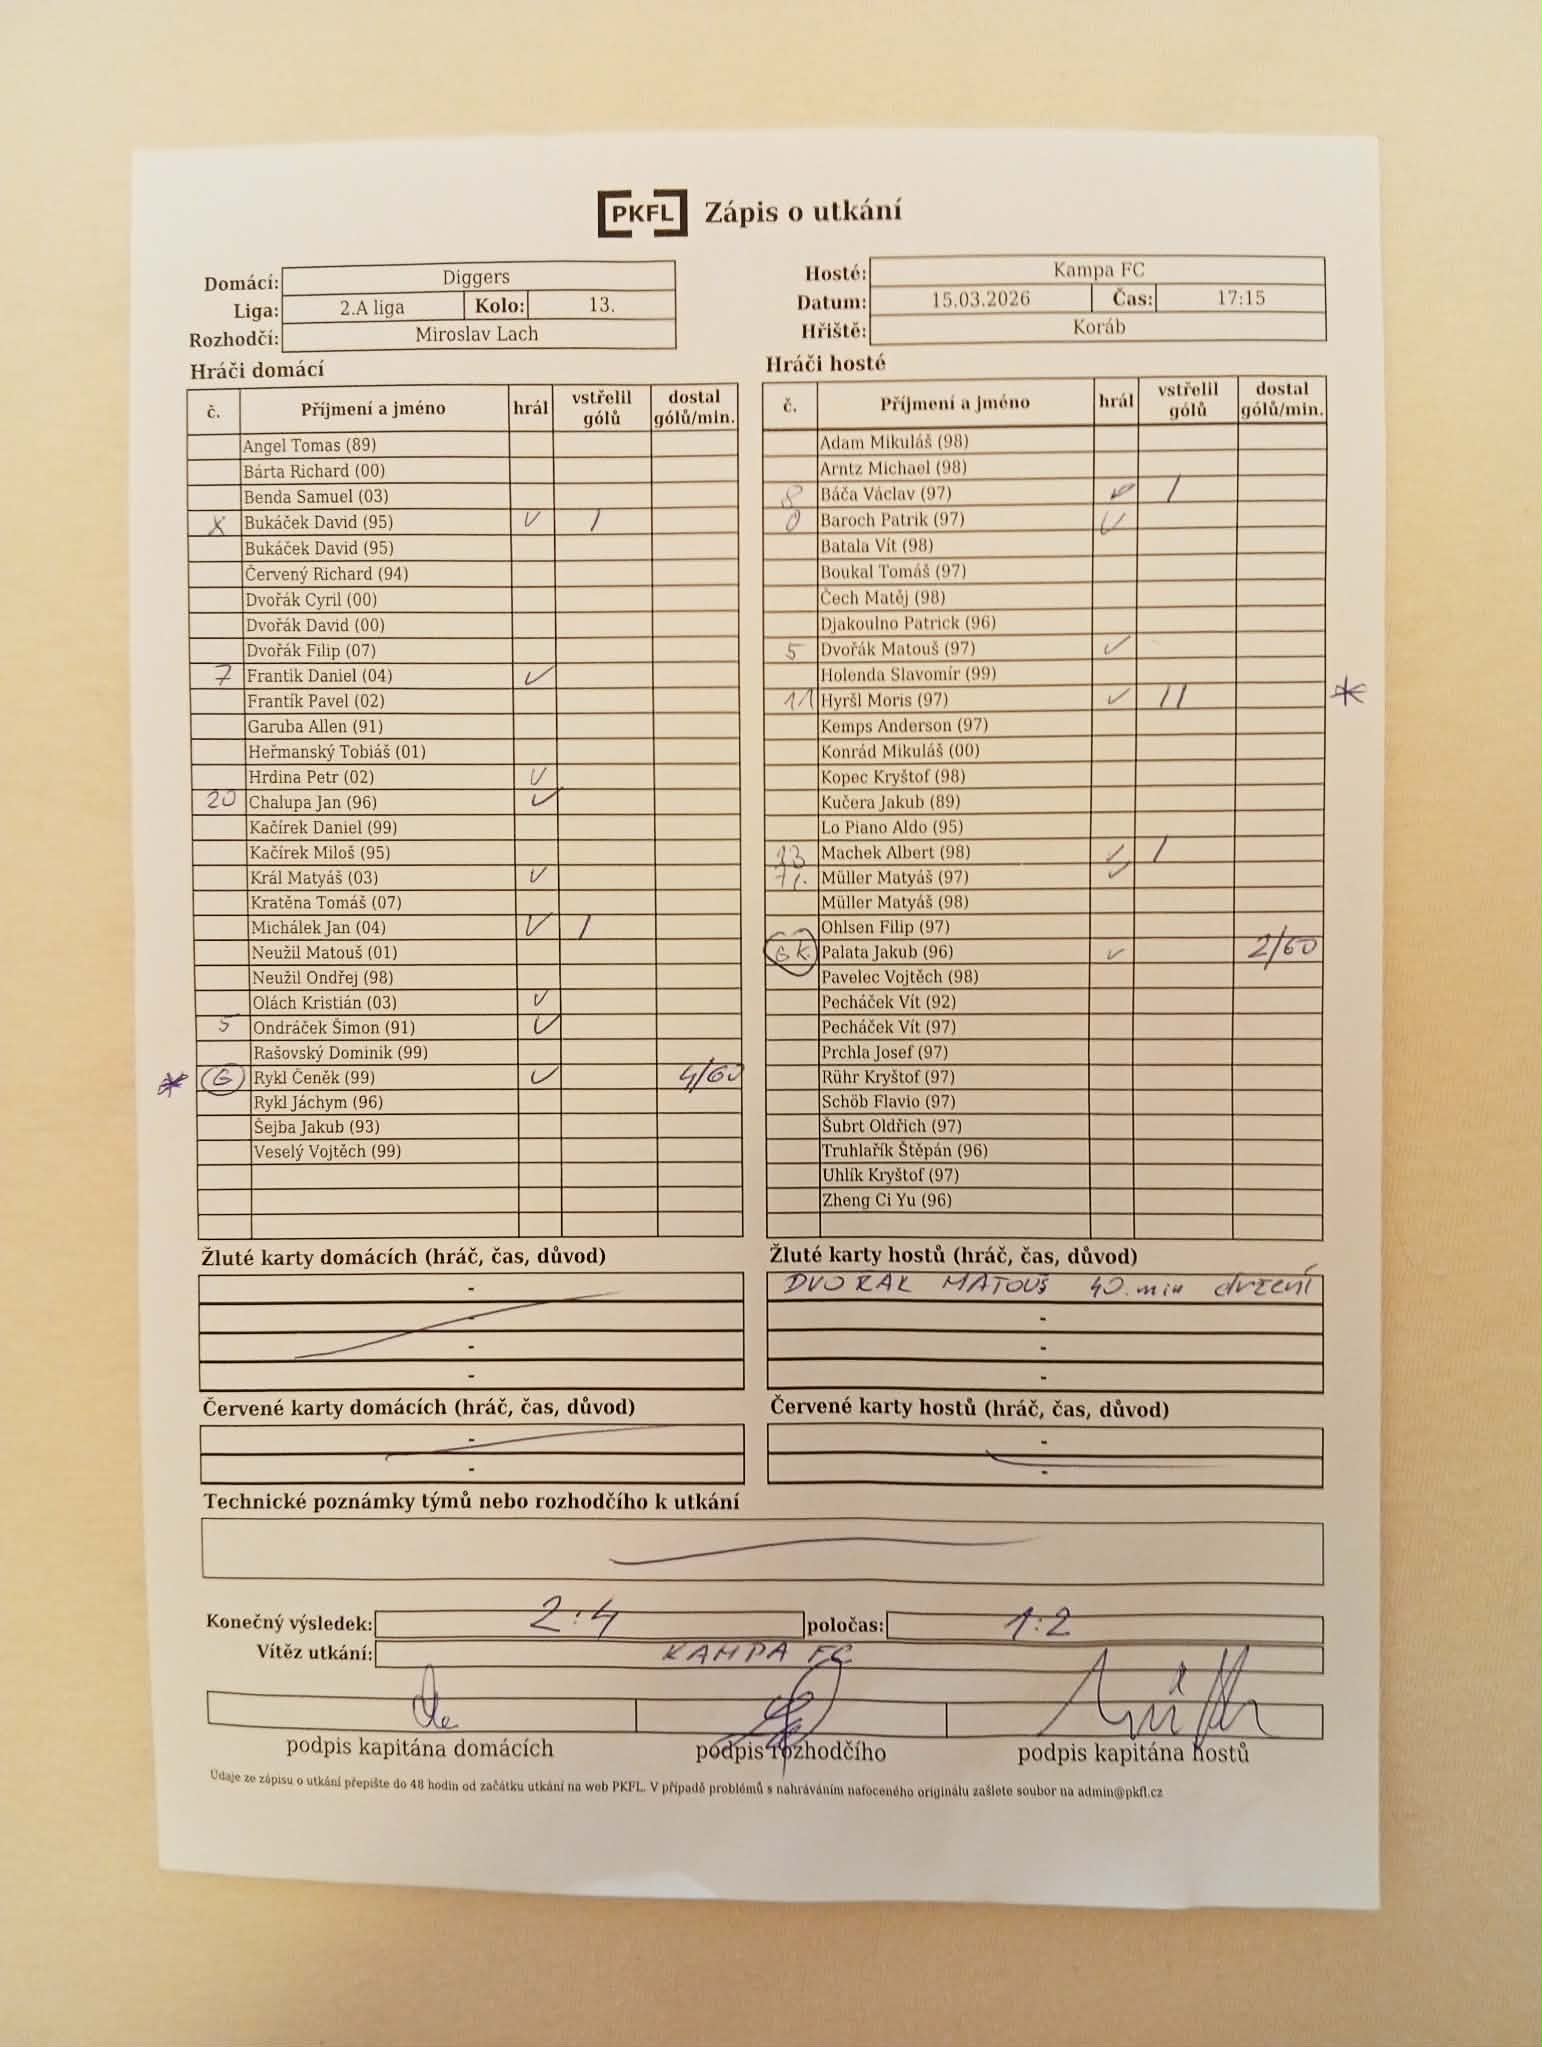 PKFL Zápis o utkání
Domácí: Diggers
Liga: 2.A liga Kolo: 13.
Rozhodčí: Miroslav Lach
Hosté: Kampa FC
Datum: 15.03.2026 Čas: 17:15
Hřiště: Koráb
Hráči domácí
č. Příjmení a jméno hrál vstřelil gólů dostal gólů/min.
Angel Tomas (89)
Bárta Richard (00)
Benda Samuel (03)
X Bukáček David (95) ✓ /
Bukáček David (95)
Červený Richard (94)
Dvořák Cyril (00)
Dvořák David (00)
Dvořák Filip (07)
7 Frantik Daniel (04) ✓
Frantík Pavel (02)
Garuba Allen (91)
Heřmanský Tobiáš (01)
Hrdina Petr (02) ✓
20 Chalupa Jan (96) ✓
Kačírek Daniel (99)
Kačírek Miloš (95)
Král Matyáš (03) ✓
Kratěna Tomáš (07)
Michálek Jan (04) ✓ /
Neužil Matouš (01)
Neužil Ondřej (98)
Olách Kristián (03) ✓
5 Ondráček Šimon (91) ✓
Rašovský Dominik (99)
* G Rykl Čeněk (99) ✓ 4/60
Rykl Jáchym (96)
Šejba Jakub (93)
Veselý Vojtěch (99)
Hráči hosté
č. Příjmení a jméno hrál vstřelil gólů dostal gólů/min.
Adam Mikuláš (98)
Arntz Michael (98)
8 Báča Václav (97) ✓ /
0 Baroch Patrik (97) ✓
Batala Vít (98)
Boukal Tomáš (97)
Čech Matěj (98)
Djakoulno Patrick (96)
5 Dvořák Matouš (97) ✓
Holenda Slavomír (99)
11 Hyršl Moris (97) ✓ // *
Kemps Anderson (97)
Konrád Mikuláš (00)
Kopec Kryštof (98)
Kučera Jakub (89)
Lo Piano Aldo (95)
Machek Albert (98) ✓ /
Müller Matyáš (97) ✓
Müller Matyáš (98)
Ohlsen Filip (97)
GK Palata Jakub (96) ✓ 2/60
Pavelec Vojtěch (98)
Pecháček Vít (92)
Pecháček Vít (97)
Prchla Josef (97)
Rühr Kryštof (97)
Schöb Flavio (97)
Šubrt Oldřich (97)
Truhlařík Štěpán (96)
Uhlík Kryštof (97)
Zheng Ci Yu (96)
Žluté karty domácích (hráč, čas, důvod)
-
-
-
-
Žluté karty hostů (hráč, čas, důvod)
DVOŘÁK MATOUŠ 40. min držení
-
-
-
Červené karty domácích (hráč, čas, důvod)
-
-
Červené karty hostů (hráč, čas, důvod)
-
-
Technické poznámky týmů nebo rozhodčího k utkání
Konečný výsledek: 2:4 poločas: 1:2
Vítěz utkání: KAMPA FC
podpis kapitána domácích podpis rozhodčího podpis kapitána hostů
Údaje ze zápisu o utkání přepište do 48 hodin od začátku utkání na web PKFL. V případě problémů s nahráváním nafoceného originálu zašlete soubor na admin@pkfl.cz